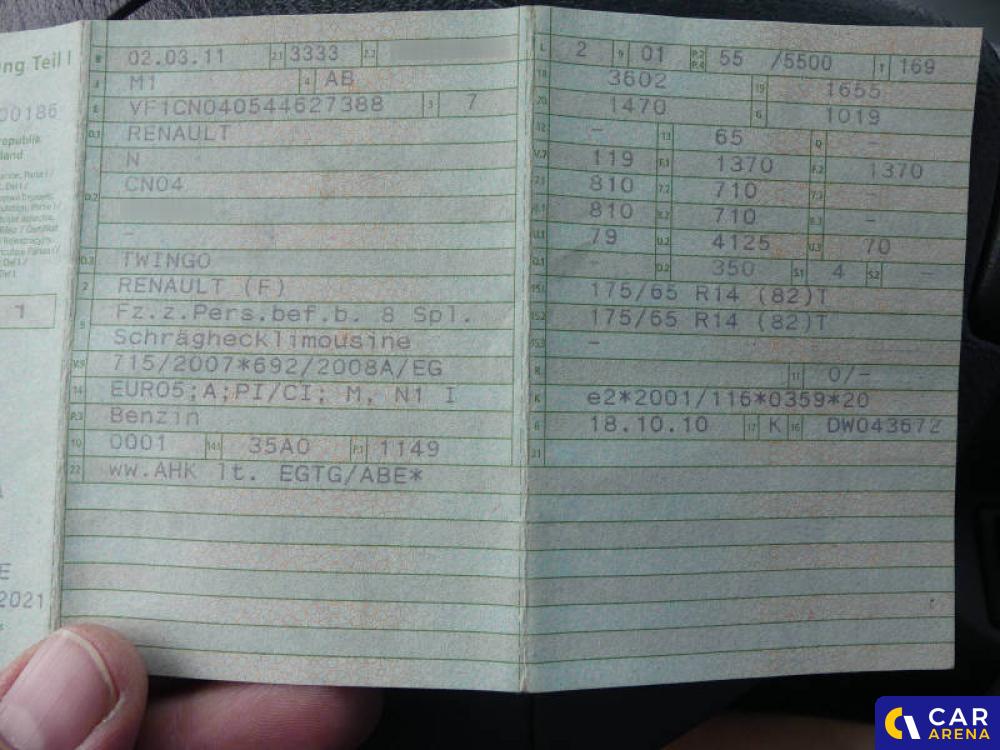 ng Teil I
00186
epublik
land
1
E
2021
B 02.03.11 2.1 3333 2.2
J M1 4 AB
E VF1CN040544627388 3 7
D.1 RENAULT
N
D.2 CN04
-
D.3 TWINGO
2 RENAULT (F)
5 Fz.z.Pers.bef.b. 8 Spl.
Schräghecklimousine
V.9 715/2007*692/2008A/EG
14 EURO5;A;PI/CI; M, N1 I
P.3 Benzin
10 0001 14.1 35A0 P.1 1149
22 ww.AHK lt. EGTG/ABE*
L 2 9 01 P.2 P.4 55 /5500 T 169
18 3602 19 1655
20 1470 G 1019
12 - 13 65 Q -
V.7 119 F.1 1370 F.2 1370
7.1 810 7.2 710 7.3 -
8.1 810 8.2 710 8.3 -
U.1 79 U.2 4125 U.3 70
O.1 - O.2 350 S.1 4 S.2 -
15.1 175/65 R14 (82)T
15.2 175/65 R14 (82)T
15.3 -
R 11 0/-
K e2*2001/116*0359*20
6 18.10.10 17 K 16 DW043672
21
CAR
ARENA